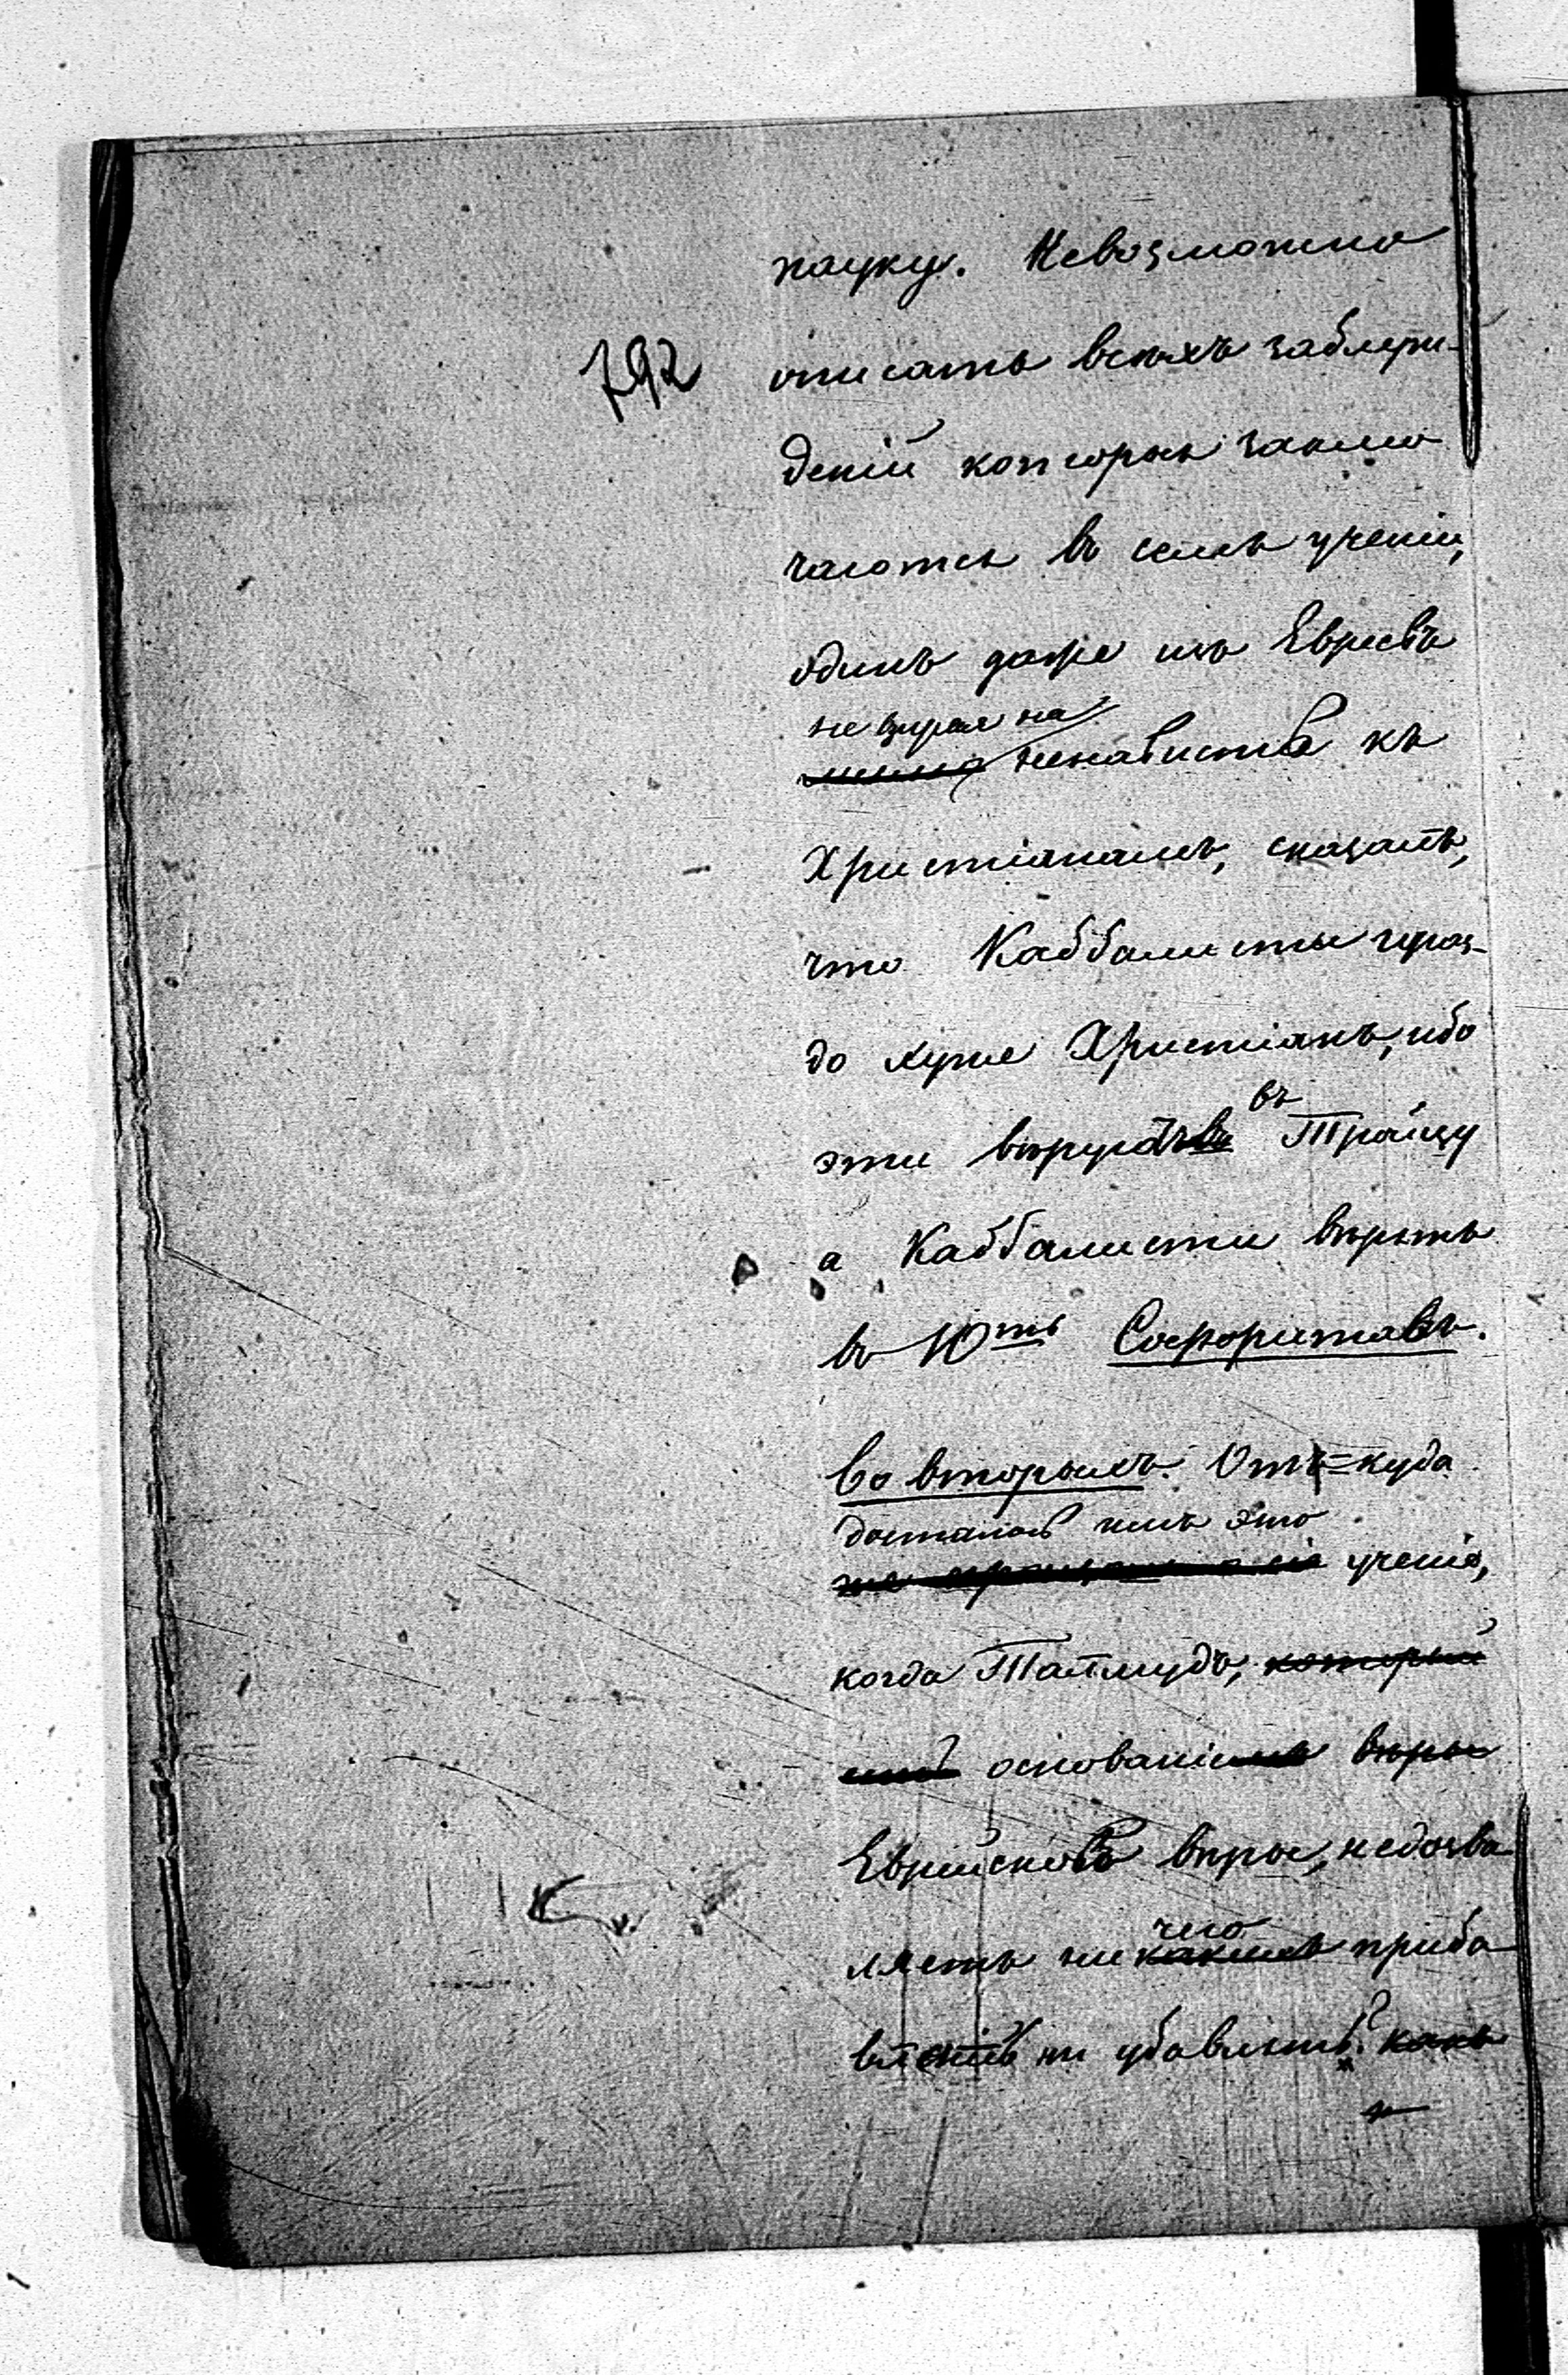 науку. Невозможно
792
описать всѣхъ заблуж-
деній которыя заклю
чаются въ семъ ученіи,
одинъ даже изъ Евреевъ
не взирая на
мимо ненависть къ
Христіанамъ, сказалъ,
что Каббалисты гораз-
до хуже Христіанъ, ибо
въ
эти вѣруютъ Троицу
а Каббалисти вѣрятъ
въ 10ть Софоритовъ.
Во вторыхъ. Отъ=куда
досталось имъ это
ученіе,
когда Талмудъ, который
есть основаніемъ вѣры
Еврейской вѣры, недозво
чего
ляетъ ни какихъ приба
влять ни убавлять? какъ